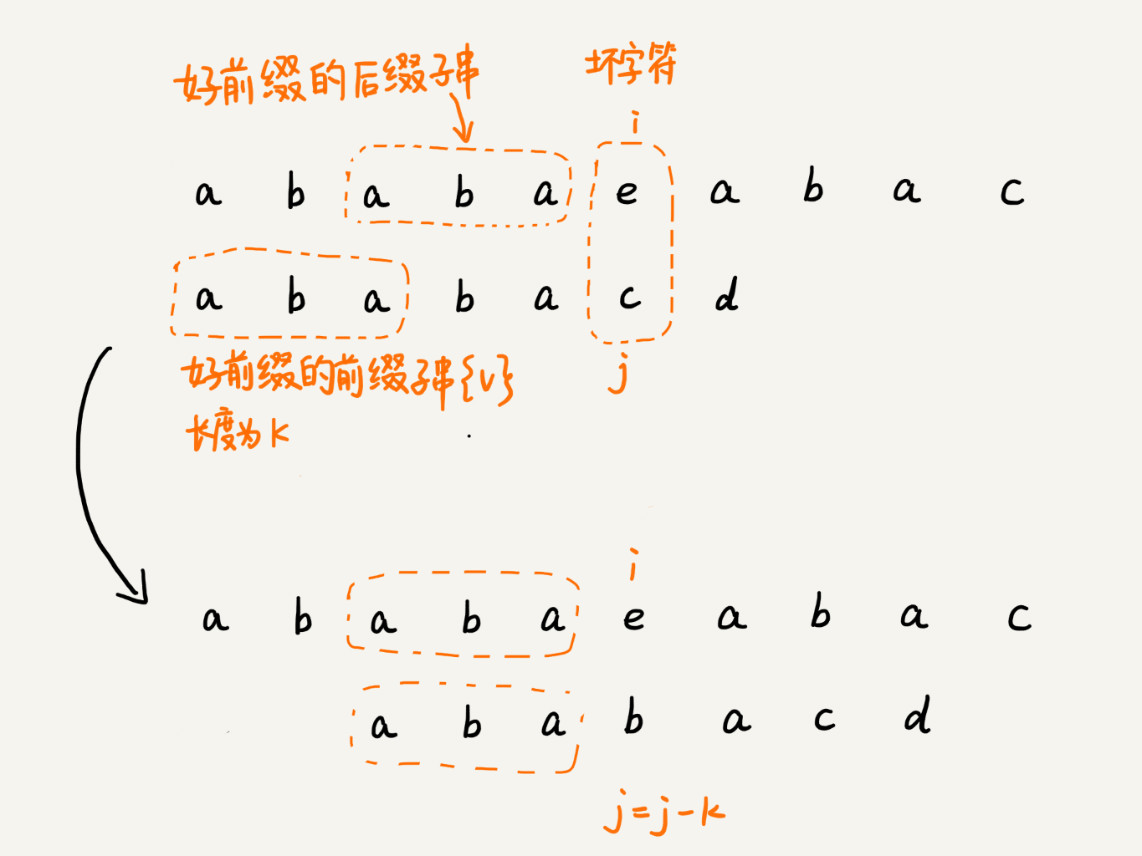 好前缀的后缀子串 坏字符
i
a b a b a e a b a c
a b a b a c d
好前缀的前缀子串{v} j
长度为k
i
a b a b a e a b a c
a b a b a c d
j=j-k